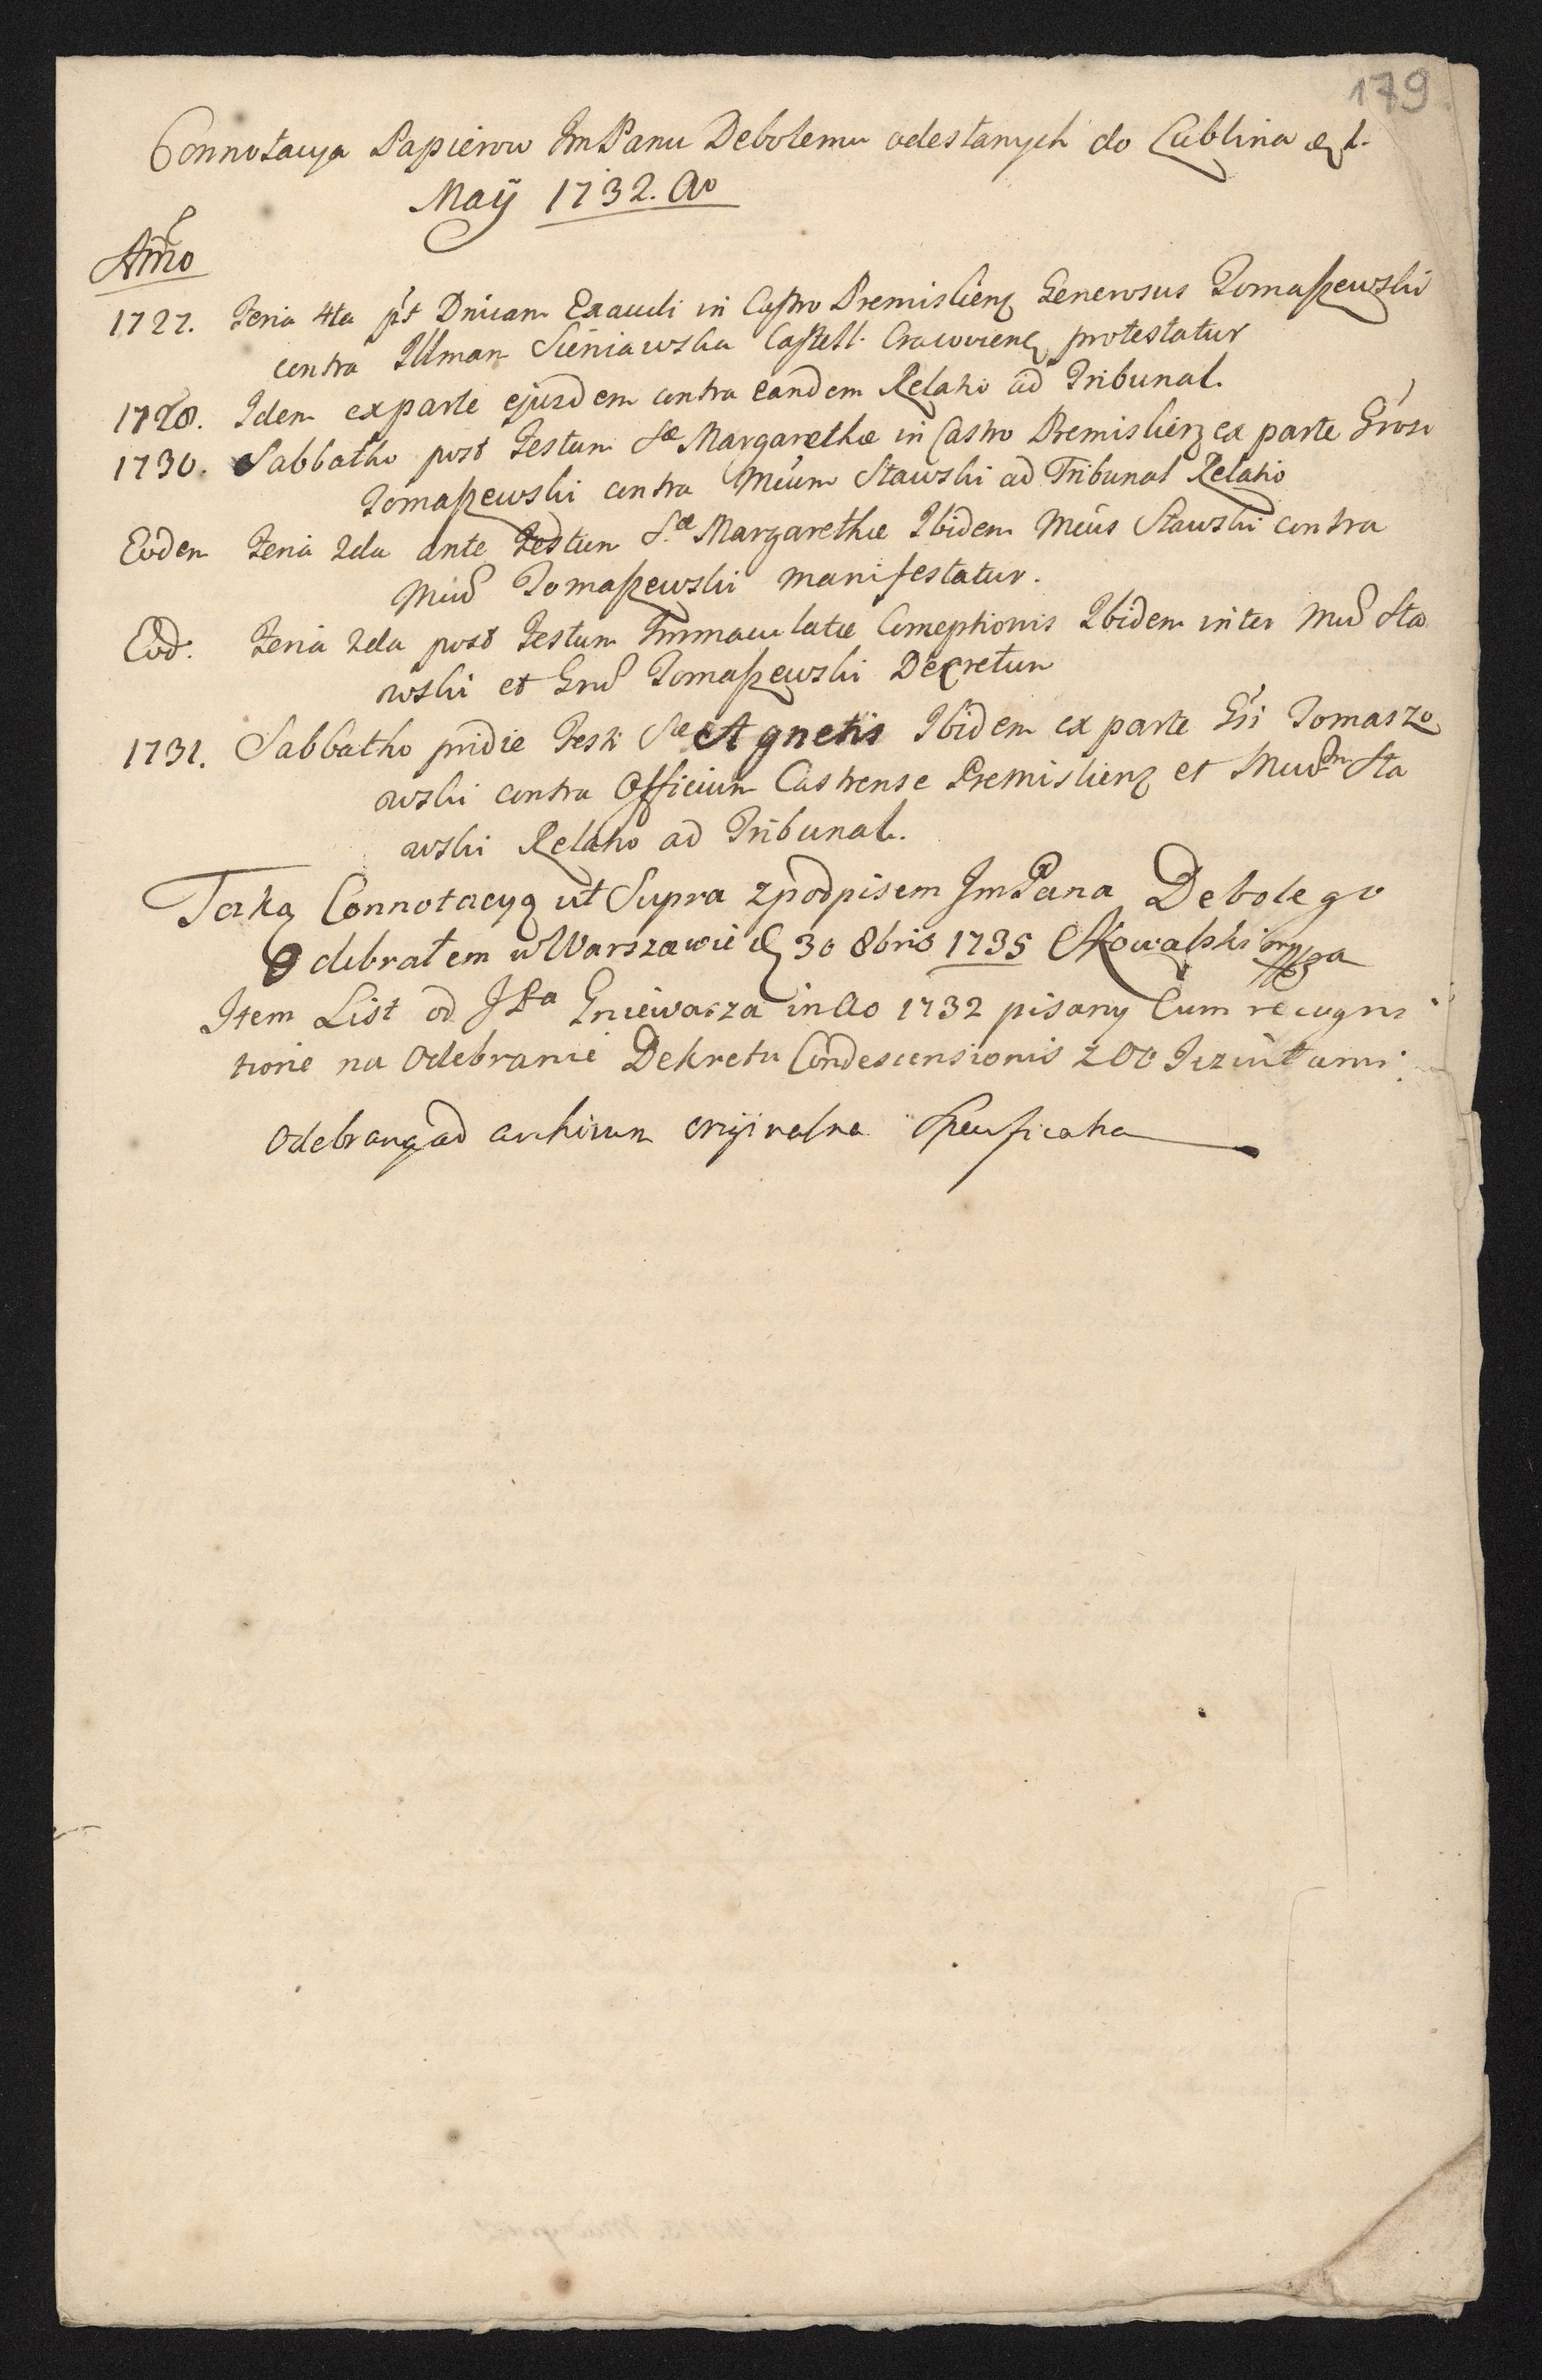 179
Connotacya Papierow ImPanu Debolemu odesłanych do Lublina d. 1.
Maÿ 1732. Ao
Anno
1727. Feria 4ta pst Dnicam Exaudi in Castro Premisliens Generosus Tomaszewski
contra Illmam Sieniawska Castell. Cracoviens protestatur
1728. Idem ex parte ejusdem contra eandem Relatio ad Tribunal.
1730. Sabbatho post Festum Sae Margarethae in Castro Premisliens ex parte Grosi
Tomaszewski contra Mcum Stawski ad Tribunal Relatio
Eodem Feria 2da ante Festum Sae Margarethae Ibidem Mcus Stawski contra
Mcum Tomaszewski manifestatur.
Eod. Feria 2da post Festum Immaculatae Conceptionis Ibidem inter Mcum Sta
wski et Grum Tomaszewski Decretum
1731. Sabbatho pridie Festi Sae Agnetis Ibidem ex parte Gsi Tomaszo
wski contra Officium Castrense Premisliens et Mcum Sta
wski Relatio ad Tribunal.
Taką Connotacyą ut Supra z podpisem ImPana Debolego
Odebrałem w Warszawie d 30 8bris 1735 Kowalski mppa
Item List od JPa Gniewosza in Ao 1732 pisany Cum recogni
tione na Odebranie Dekretu Condescensionis z OO Jezuitami
Odebraną ad archivum oryjinalna Specificatia